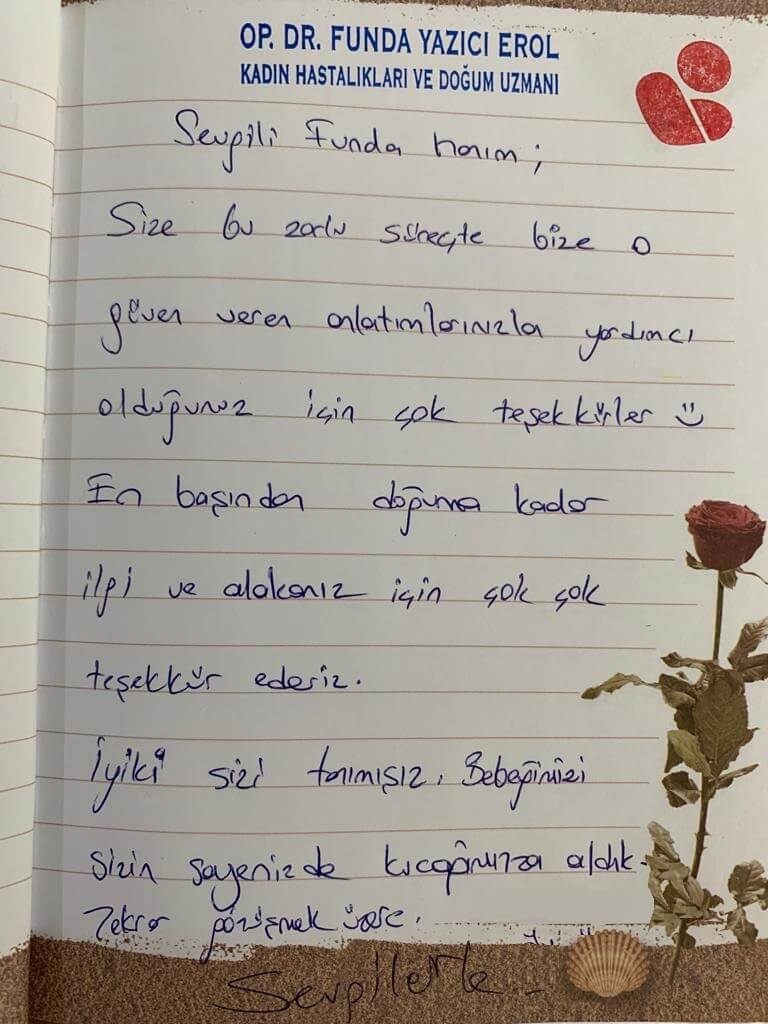 OP. DR. FUNDA YAZICI EROL
KADIN HASTALIKLARI VE DOĞUM UZMANI
Sevgili Funda hanım;
Size bu zorlu süreçte bize o
güven veren anlatımlarınızla yardımcı
olduğunuz için çok teşekkürler :)
En başından doğuma kadar
ilgi ve alakanız için çok çok
teşekkür ederiz.
İyiki sizi tanımışız. Bebeğimizi
sizin sayenizde kucağımıza aldık.
Tekrar görüşmek üzere.
Sevgilerle